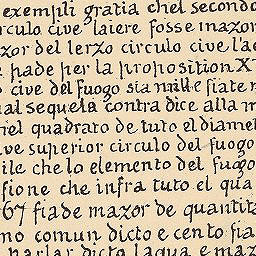 exempli gratia chel secondo
rculo cive laiere fosse mazor
zor del terzo circulo cive l'ae
e pade per la proposition X
o cive del fuogo sia mille fiate m
al sequela contra dice alla m
riel quadrato de tuto el diamet
ve superior circulo del fuogo
ile che lo elemento del fuogo
sione che infra tuto el qua
67 fiade mazor de quantita
mo comun dicto e cento fia
parlar dicto laqua e maz